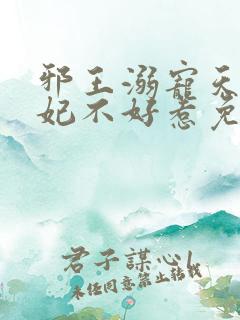 邪王溺寵天
妃不好惹免
君子謀心l
未經同意禁止轉載